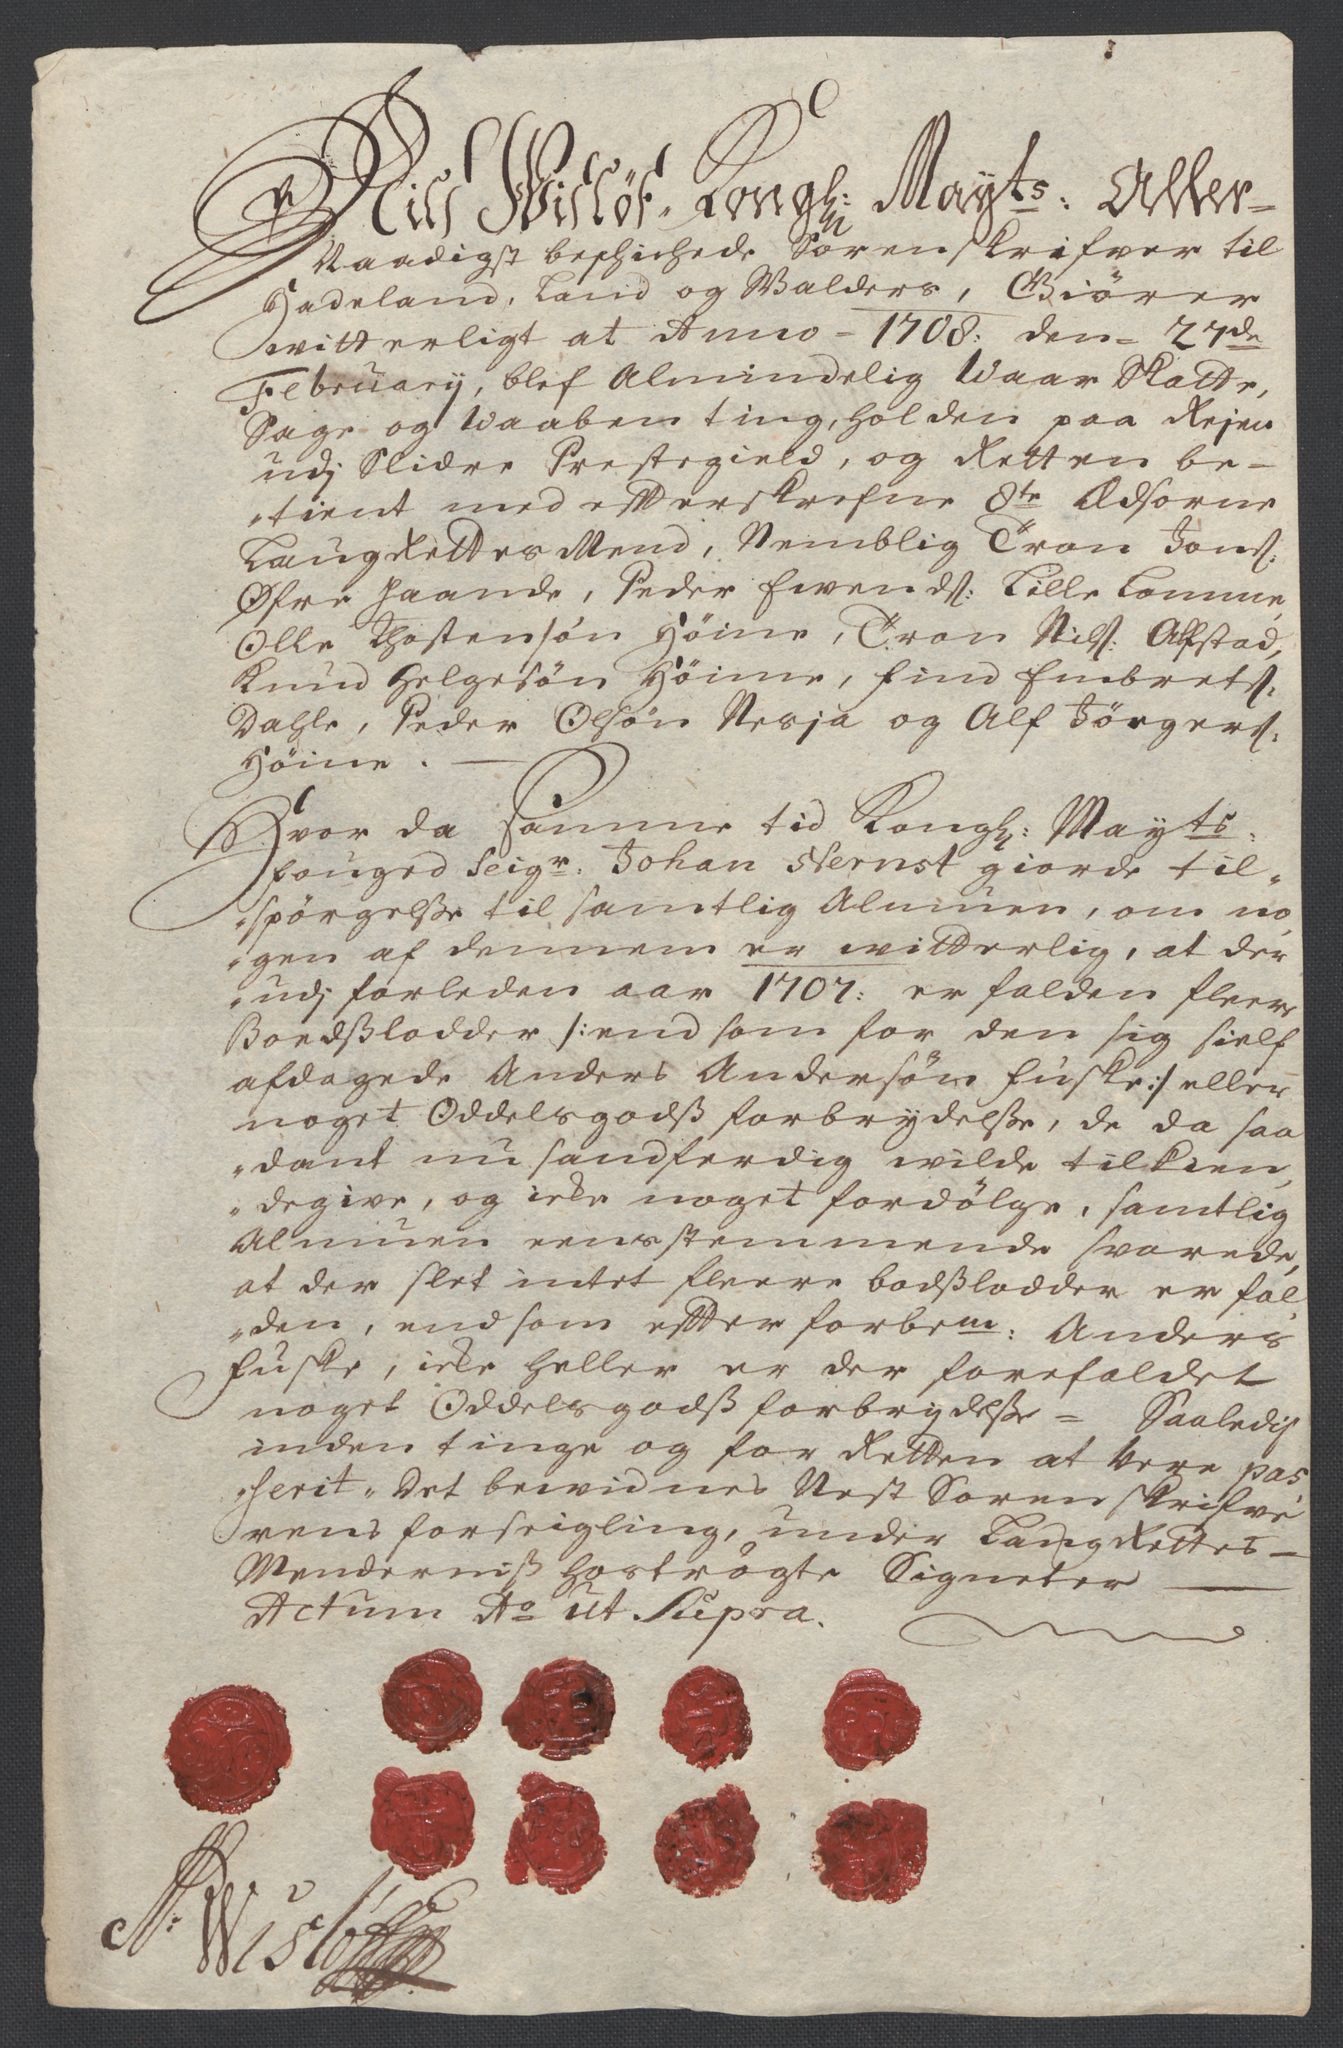 Nils Wislöf, Kongl: Mayts: Aller-
Naadigst beschichede Sorenskrifver til
Hadeland, Land og Walders, Giörer
witterligt at Anno - 1708: den - 27de
February, blef Almindelig Waar Skatte,
Sage og Waaben ting, holden paa Rejen
udj Slidre Prestegield, og Retten be-
„tient med efterskrefne 8te Edsorne
LaugRettes Mend, Nemblig Tron Jons:
Øfre Haande, Peder Ewends: Lille Lomme,
Olle Thostensön Höine, Tron Nils: Alfstad,
Knud Helgesön Höine, Find Embrets:
Dahle, Peder Olsön Nesja og Alf Jörgers:
Höine. —
Hvor da samme tid Kongl: Mayts:
fouged Seigr: Johan Nernst giorde til„
„spörgelsse til samtlig Almuen, om no„
„gen af dennem er witterlig, at der
„udj forleden aar 1707: er falden fleere
Boedsslodder /: end som for den sig sielf
afdagede Anders Andersön Fuske :/ eller
noget Oddelsgodss forbrydelsse, de da saa
„dant nu sandferdig wilde tilkien„
„degive, og icke noget fordölge, samtlig
Almuen eensstemmende svarede,
at der slet intet fleere bodsslodder er fal„
„den, end som efter forbem: Anders
Fuske, icke heller er der forefaldet
noget Oddelsgodss forbrydelsse - Saaledis
inden tinge og for Retten at Vere pas
„serit. Det bewidnes Nest Sorenskrifve
rens forseigling, under LaugRettes-
Menderniss hoströgte Signeter —
Actum Ao ut Supra.
N: Wislöff